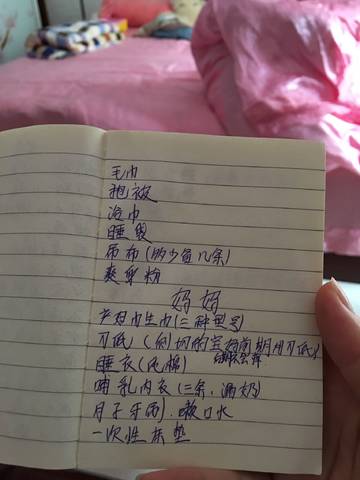 毛巾
抱被
浴巾
睡袋
吊布(多少自几条)
爽身粉
妈妈
产妇卫生巾(三种型号)
刀纸(的宝妈前期用刀纸
睡衣(纯棉)
哺乳内衣(三条,漏奶)
月子牙刷,漱口水
一次性床垫